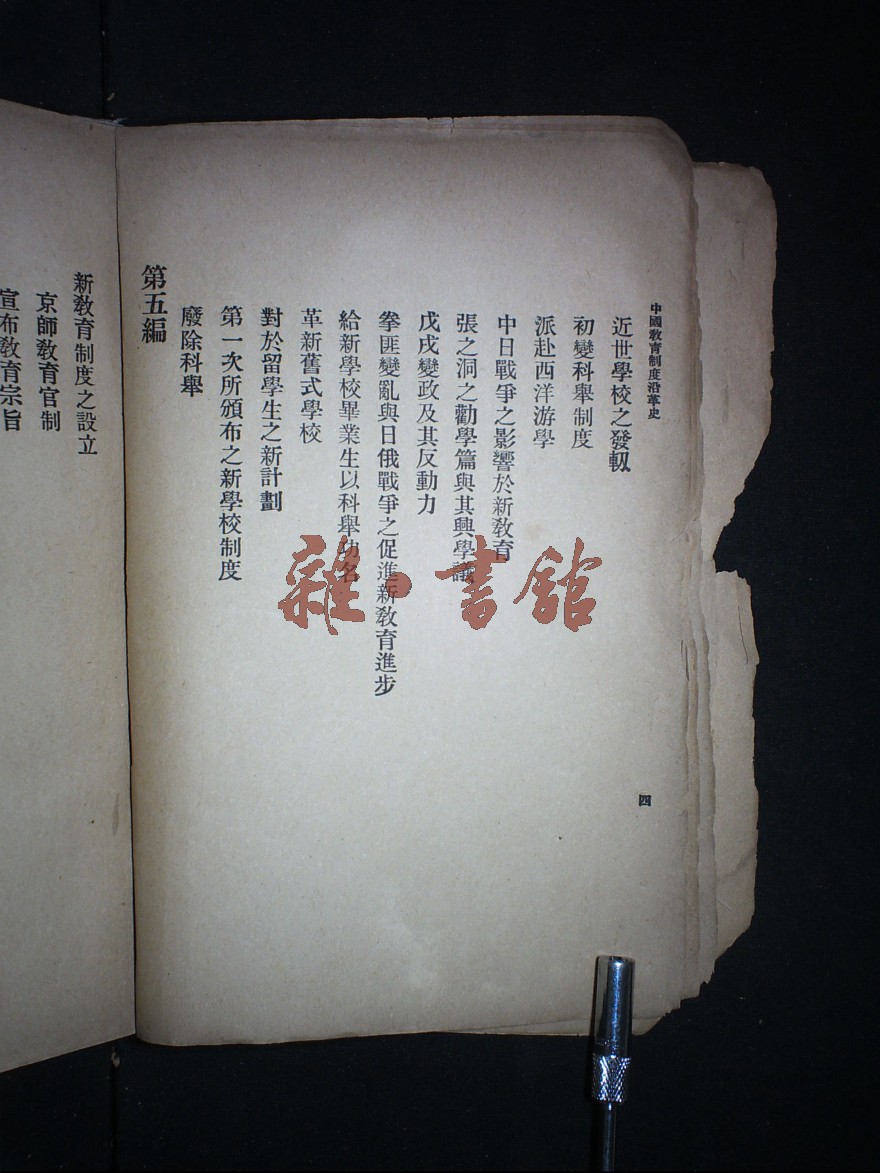 中國敎育制度沿革史
近世學校之發軔
初變科舉制度
派赴西洋游學
中日戰爭之影響於新敎育
張之洞之勸學篇與其興學議
戊戌變政及其反動力
拳匪變亂與日俄戰爭之促進新敎育進步
給新學校畢業生以科舉功名
革新舊式學校
對於留學生之新計劃
第一次所頒布之新學校制度
廢除科舉
第五編
四
新敎育制度之設立
京師敎育官制
宣布敎育宗旨
雜·書館